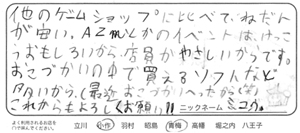 他のゲームショップに比べて、ねだん
が安い。AZMとかのイベントは、けっこ
うおもしろいから。店員がやさしいからです。
おこづかいの中で買えるソフトなど
タカいから。(最近おこづかいへったから)
これからもよろしくお願い!!
ニックネーム ミコカ。
よく利用されるお店を
○で囲んでください。
立川 小作 羽村 昭島 青梅 高幡 堀之内 八王子